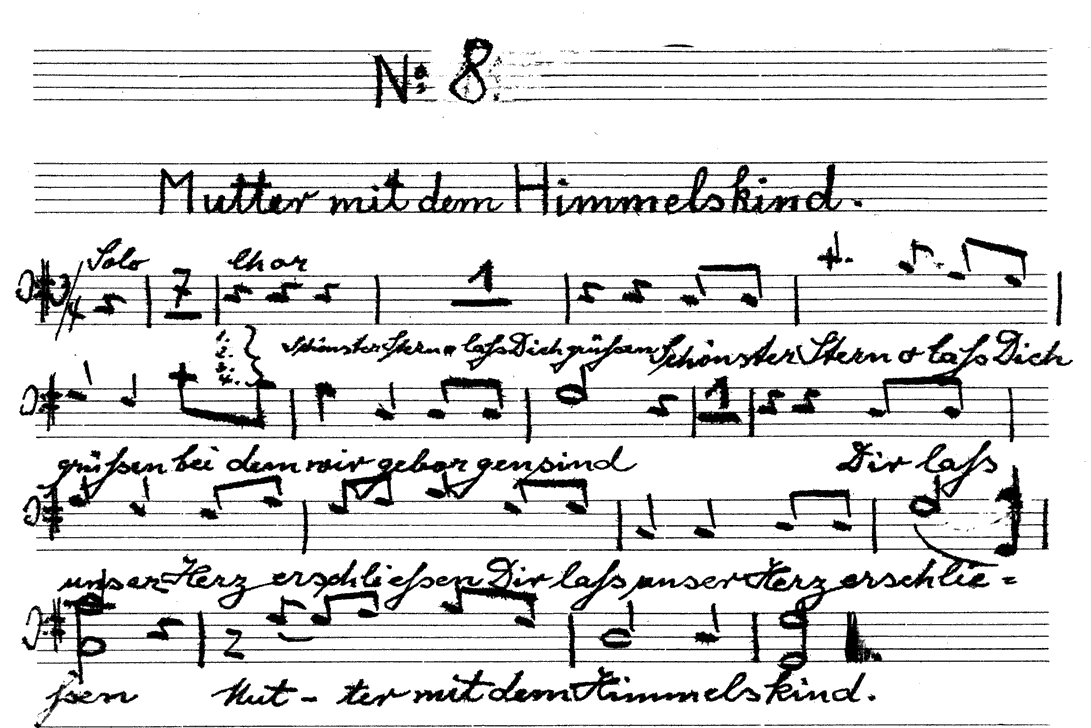 No: 8.
Mutter mit dem Himmelskind.
Solo Chor
3/4 7 1
1. 2. 3. 4. Schönster Stern o laß Dich grüßen Schönster Stern o laß Dich
1
grüßen bei dem wir geborgen sind Dir laß
unser Herz erschließen Dir laß unser Herz erschlie =
ßen Mut - ter mit dem Himmelskind.